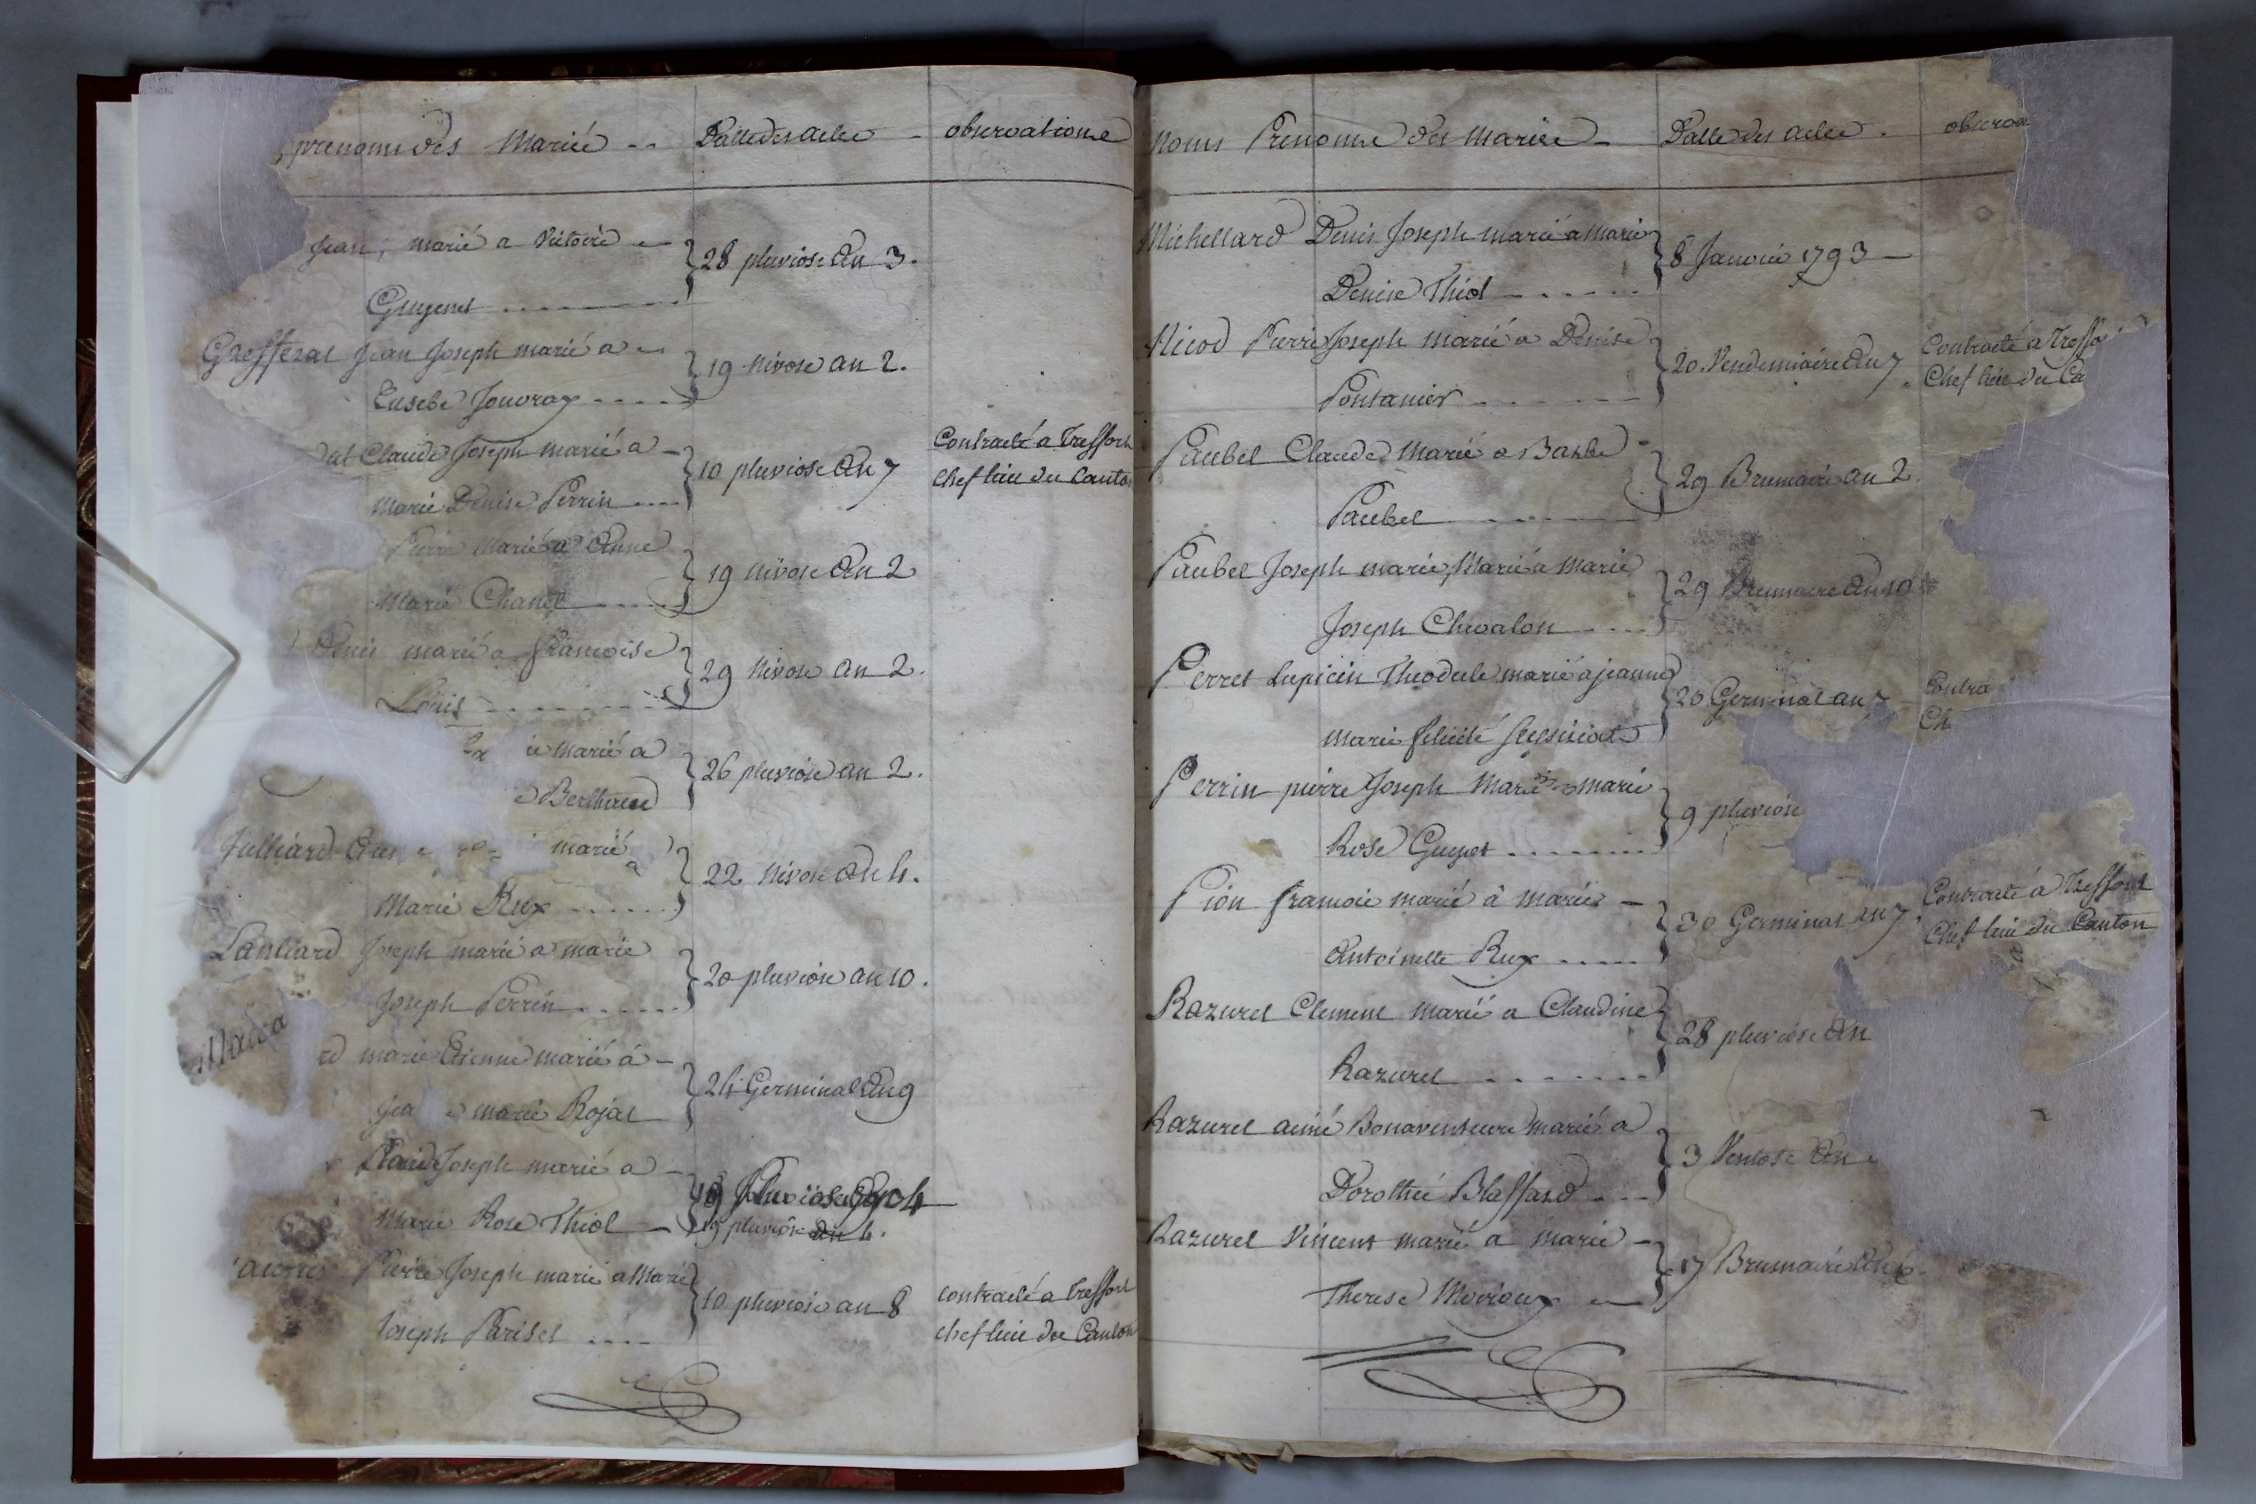 prenoms des Marié Datte des actes observations
Jean, marié a Victoire
28 pluviose an 3.
Guyenet
Grefferat Jean Joseph marié a
19 Nivose an 2.
Eusebe Jouvray
dat Claude Joseph marié a
10 pluviose an 7
Contracté a Treffort
chef lieu du Canton
Marie Denise Perrin
Pierre marié a Anne
19 Nivose an 2
Marie Chanel
Denis marié a francoise
29 Nivose an 2.
Louis
marié a
26 pluviose an 2.
Berthaud
Julliard marié a
22 Nivose an 4.
Marie Rux
Lanliard Joseph marié a marie
20 pluviose an 10.
Joseph Perrin
rd marie Etienne marié á
24 Germinal an 9
marie Rojat
Claude Joseph marié a
19 pluviose an 4
Marie Rose Thiol
19 pluviose an 4.
Pierre Joseph marié a Marie
10 pluviose an 8
contracté a treffort
chef lieu du Canton
Joseph Pariset
Noms Prenoms des mariés Datte des actes observa
Michellard Denis Joseph marié a marie
8 Janvier 1793
Denise Thiol
Nicod Pierre Joseph marié a Denise
20 Vendemiaire an 7
Contracté a Treffo
Chef lieu du Ca
Pontanier
Paubel Claude Marié a Barbe
29 Brumaire an 2
Paubel
Paubel Joseph marie, Marié a Marie
29 Brumaire an 10
Joseph Chevalon
Perret Lupicin Theodule marié a jeanne
20 Germinal an 7
Contra
Ch
marie felicité
Perrin pierre Joseph Marié a marie
9 pluviose
Rose Guyot
Pion francois marié á marie
30 Germinal an 7.
Contracté a Treffort
Chef lieu du Canton
Antoinette Rux
Razurel Clement marié a Claudine
28 pluviose an
Razurel
Razurel aimé Bonaventure marié a
3 Ventose an
Dorothée Blaffard
Razurel Vincent marié a marie
17 Brumaire an
Therese Morioux